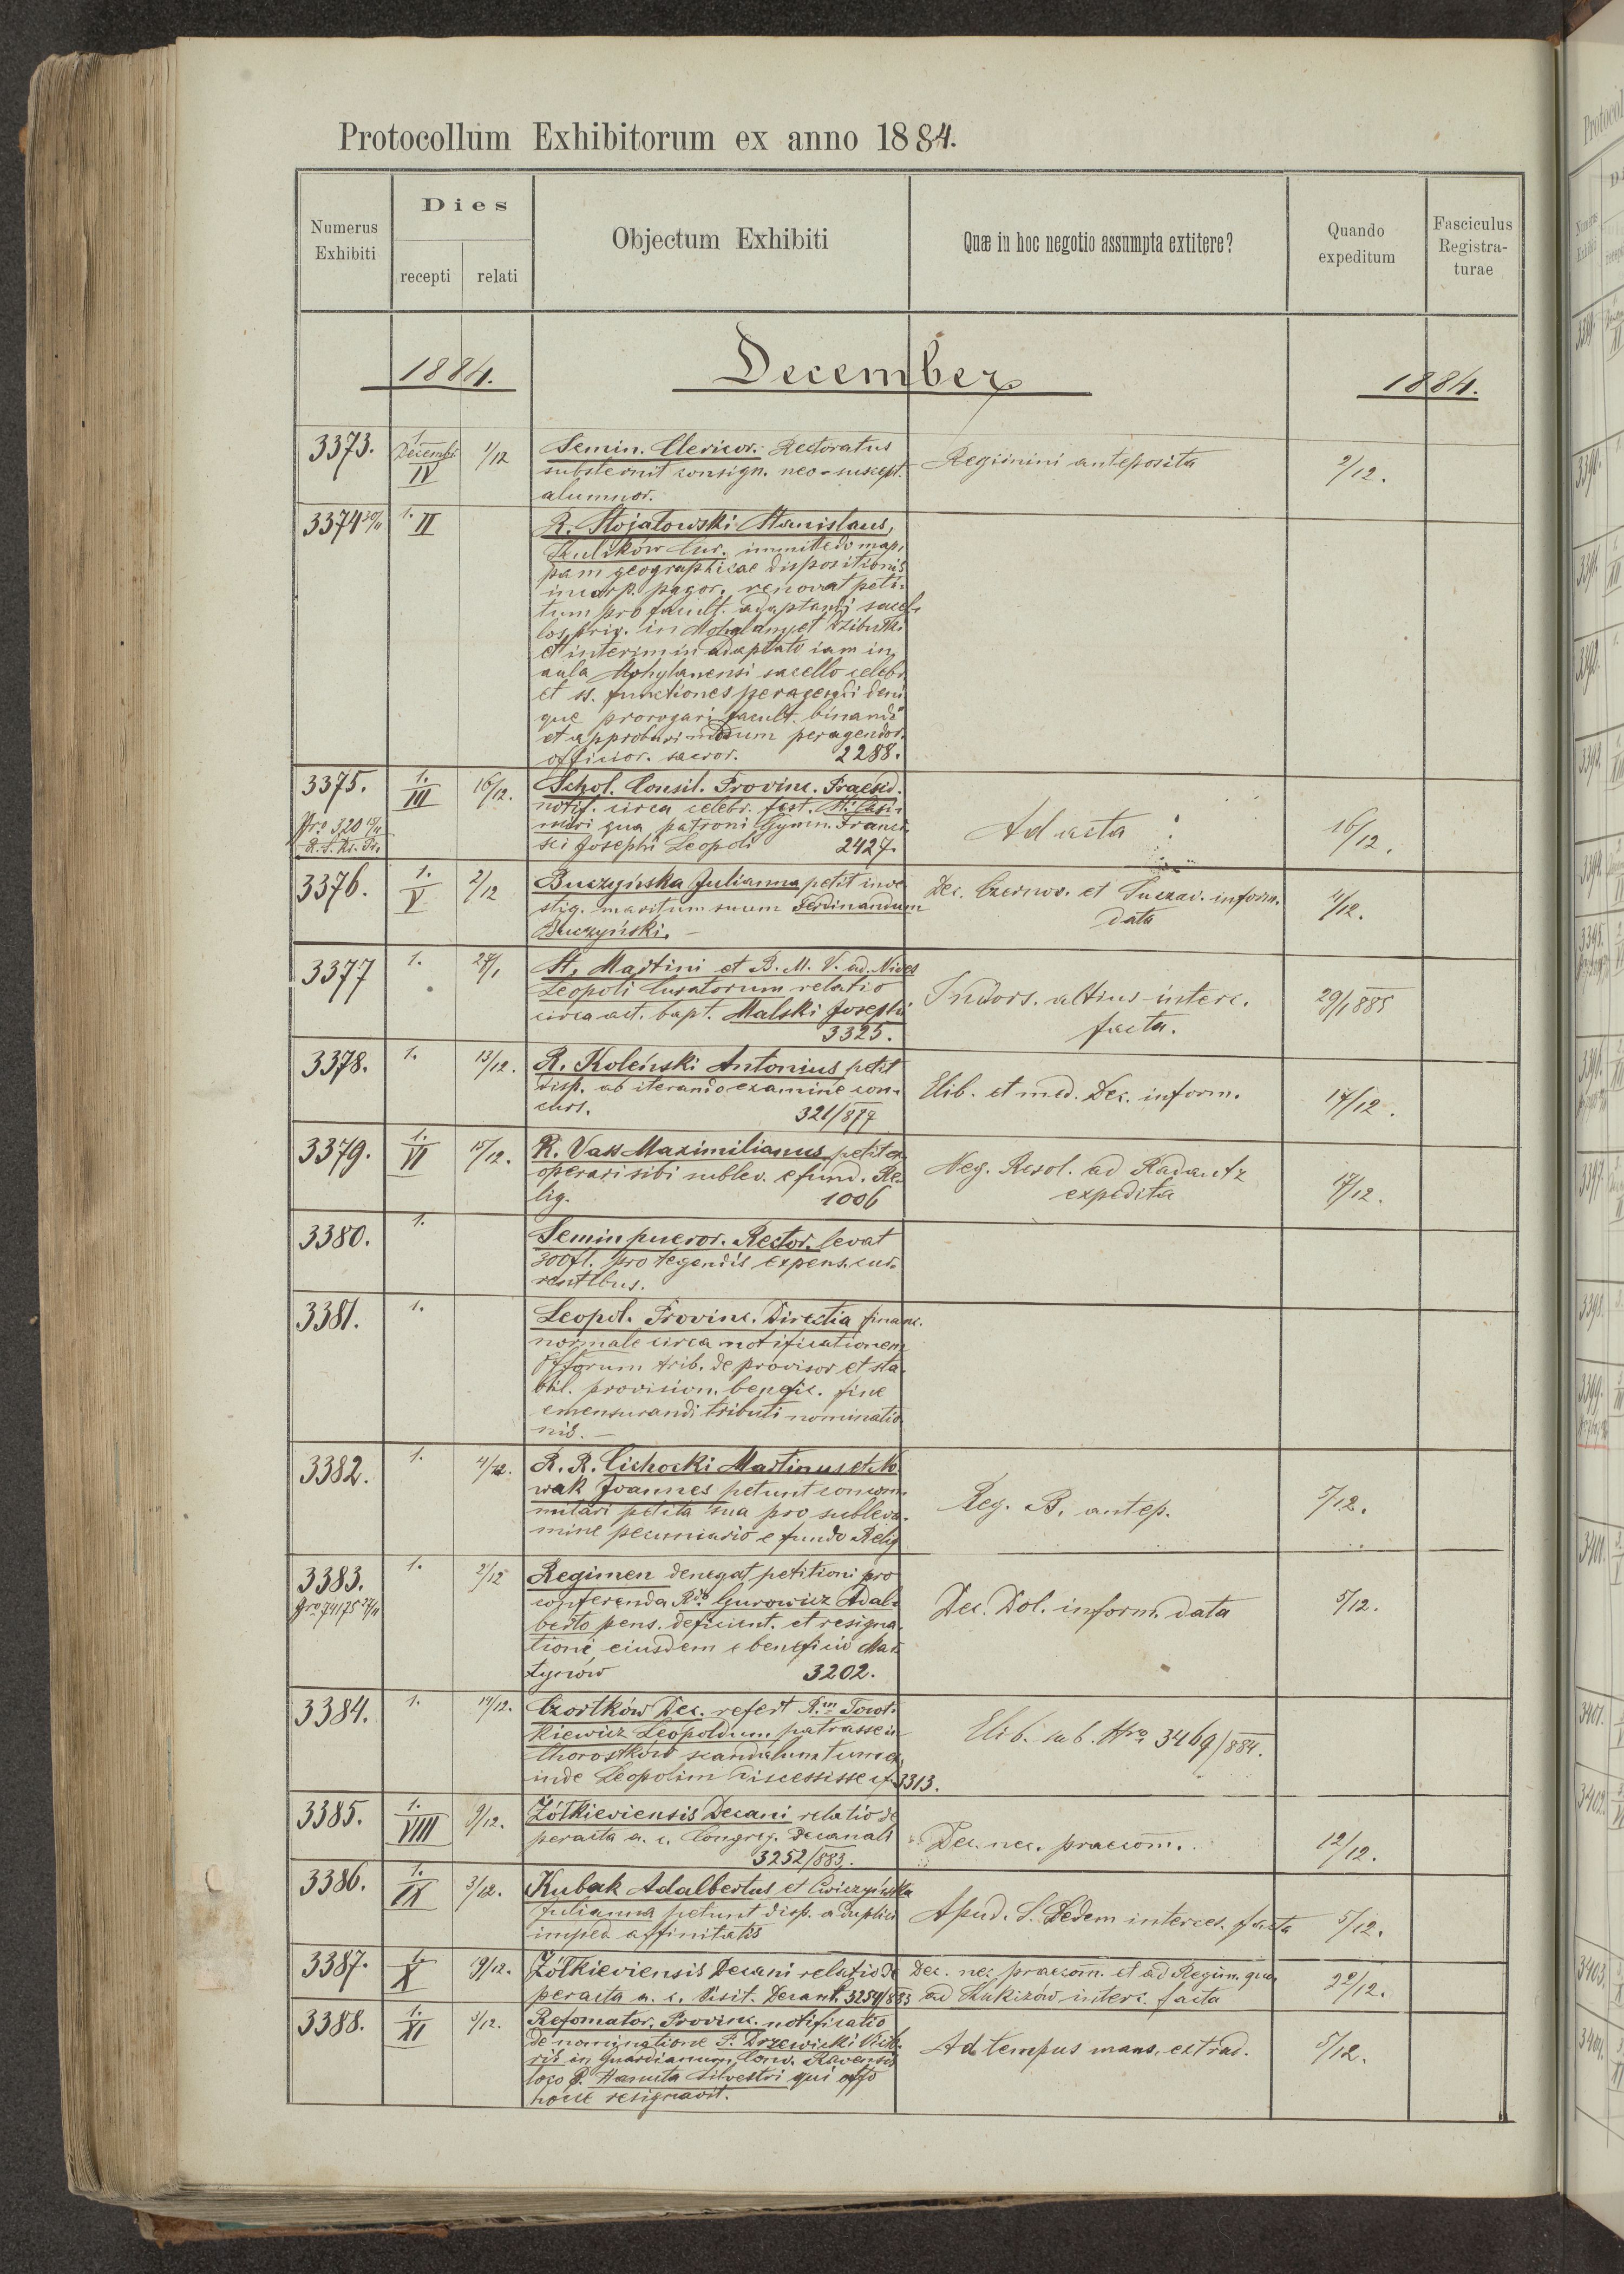 Protocollum Exhibitorum ex anno 1884.
Numerus Exhibiti
Dies
recepti
relati
Objectum Exhibiti
Quæ in hoc negotio assumpta extitere?
Quando expeditum
Fasciculus Registra-turae
1884. December 1884.
3373. 1. Decemb. IV 1/12 Semin. Clericor. Rectoratus
substernit consign. neo-suscept.
alumnor.
Regimini anteposita 2/12.
3374 30/11 1. II R. Stojałowski Stanislaus,
Kulików Cur. immittedo map,
pam geographicae dispositionis
incorp. pagor. renovat peti-
tum pro facult. adaptandi sacel-
los priv. in Mohylany et Dzibułki
et interim in adaptato iam in
aula Mohylanensi sacello celebr.
et ss. functiones peragendi deni
que prorogari facult. binandi
et approbari modum peragendor.
officior. sacror. 2288.
3375. 1. III 16/12. Schol. Consil. Provinc. Praesid.
Nro 320 15/11
notif. circa celebr. fest. St. Casi-
miri qua patroni Gymn. Franci
sci Josephi Leopoli 2427.
Ad acta 16/12.
3376. 1. V 2/12 Buczyńska Julianna petit inve
stig. maritum suum Ferdinandum
Buczyński. –
Dec. Czernov. et Suczav. inform.
data 4/12.
3377 1. 27/1 St. Martini et B. M. V. ad Nives
Leopoli Curatorum relatio
circa act. bapt. Malski Josephi
3325.
Indors. altius interc.
facta. 29/1 885
3378. 1. 13/12. R. Koleński Antonius petit
disp. ab iterando examine con-
curs. 321/877
Elib. et med. Dec. inform. 17/12.
3379. 1. VI 15/12. R. Vass Maximilianus petit ex
operari sibi sublev. e fund. Re-
lig. 1006
Neg. Resol. ad Radautz
expedita 17/12.
3380. 1. Semin pueror. Rector. levat
300 fl. pro tegendis expens. cur-
rentibus.
3381. 1. Leopol. Provinc. Directia financ.
normale circa notificationem
offorum trib. de provisor et sta-
bil. provision. benefic. fine
emensurandi tributi nominatio
nis. –
3382. 1. 4/12. R. R. Cichocki Martinus et No
wak Joannes petunt concom
mitari petita sua pro subleva-
mine pecuniario e fundo Relig
Reg. B. antep. 5/12.
3383. 1. 2/12 Regimen denegat petitioni pro
Nro 74175 24/11
conferenda Rdo Gurowicz Adal-
berto pens. deficient. et resigna-
tioni eiusdem e beneficio Mar-
tynów 3202.
Dec. Dol. inform. data 5/12.
3384. 1. 14/12. Czortków Dec. refert Rm
kiewicz Leopoldum patrasse in
Chorostków scandalum
inde Leopolim discessisse cf. 3313.
Elib. sub. Nro 3469/884.
3385. 1. VIII 9/12. Żółkieviensis Decani relatio de
peracta a. c. Congreg. Decanali
3252/883.
Dec. nec. praecom. 12/12.
3386. 1. IX 3/12. Kubak Adalbertus et Ćwiczyńska
Julianna petunt disp. a duplici
imped. affinitatis
Apud. S. Sedem interces. facta 5/12.
3387. 1. X 19/12. Żółkieviensis Decani relatio de
peracta a. c. Visit. Decanl. 3254/883
Dec. nec praecom. et ad Regim. qua
ad Kukizów interc. facta 22/12.
3388. 1. XI 4/12. Refomator. Provinc. notificatio
de nominatione P. Drzewicki Vict-
ris in Guardianum Conv. Ravensis
loco P. Silvestri qui offo
hocce resignavit.
Ad tempus mans. extrad. 5/12.